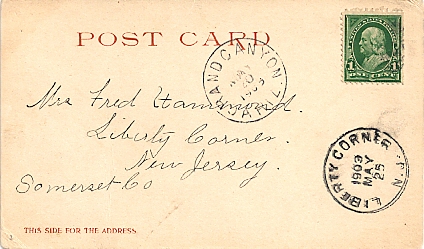 POST CARD
GRAND CANYON
MAY
20
1903
ARIZ.
1 ONE CENT 1
Mrs Fred Hammond,
Liberty Corner
New Jersey.
Somerset Co
LIBERTY CORNER, N.J.
1903
MAY
25
THIS SIDE FOR THE ADDRESS